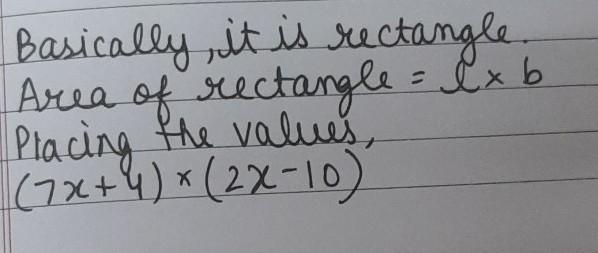 Basically, it is rectangle.
Area of rectangle = l × b
Placing the values,
(7x+4) × (2x-10)